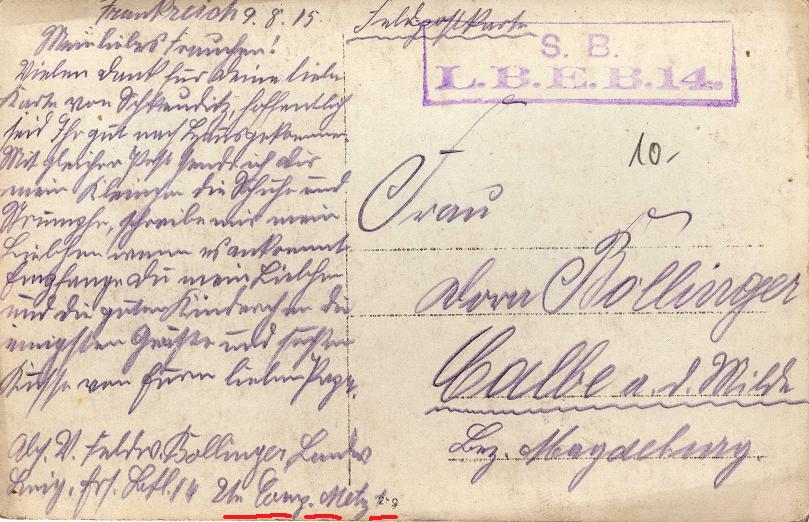 Frankreich 9.8.15.
Mein liebes Frauchen!
Vielen Dank für Deine liebe
Karte von Schkeuditz, hoffentlich
seid Ihr gut nach Hause gekommen.
Mit gleicher Post sende ich Dir
mein Kleinchen die Schuhe und
Strümpfe, schreibe mir mein
Liebchen wenn es ankommt.
Empfange Du mein Liebchen
und die guten Kinderchen die
innigsten Grüße und
Küsse von Eurem lieben Papa.
Abs. V. Feldw. Bollinger, Landw
Ers. Batl. 14 Comp. Metz 1.
Feldpostkarte
S. B.
L. B. E. B. 14.
10.-
Frau
Dora Bollinger
Calbe a. d. Milde
Bez. Magdeburg.